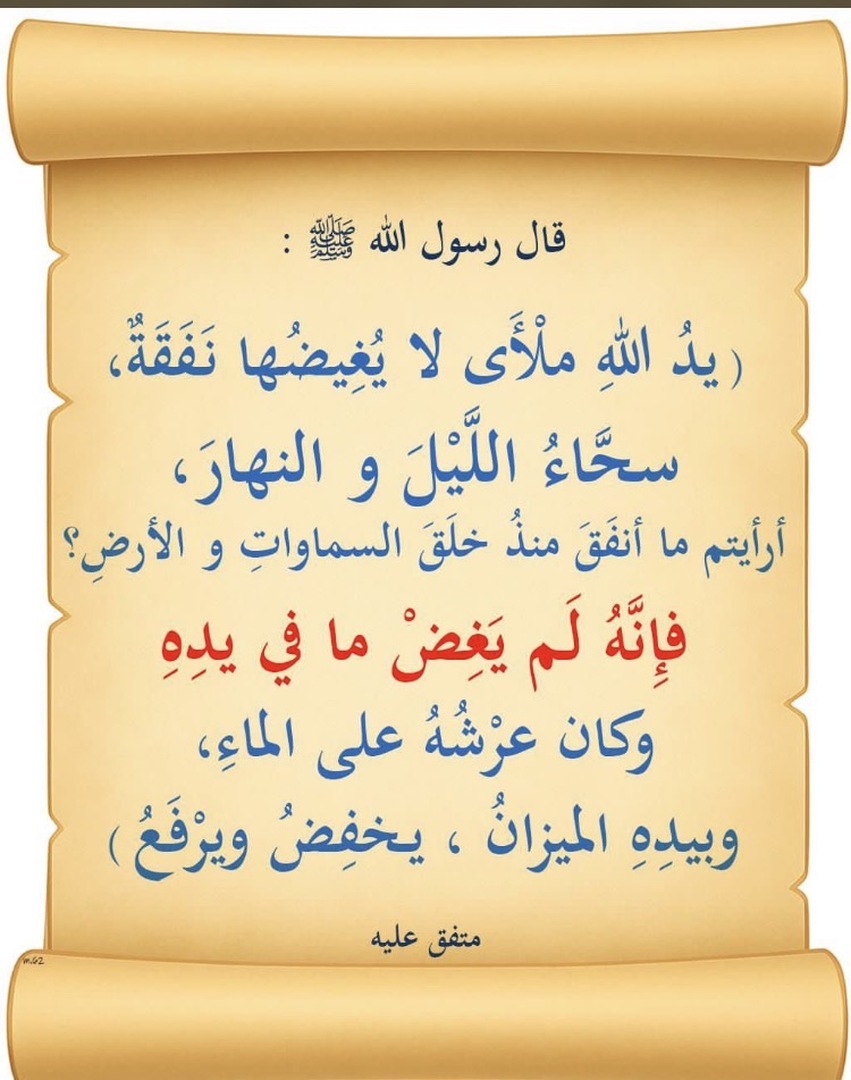 قال رسول الله ﷺ :
( يدُ اللهِ ملْأَى لا يُغِيضُها نَفَقَةٌ،
سحَّاءُ اللَّيْلَ و النهارَ،
أرأيتم ما أنفَقَ منذُ خلَقَ السماواتِ و الأرضِ؟
فإِنَّهُ لَم يَغِضْ ما في يدِهِ
وكان عرْشُهُ على الماءِ،
وبيدِهِ الميزانُ ، يخفِضُ ويرْفَعُ )
متفق عليه
m.62